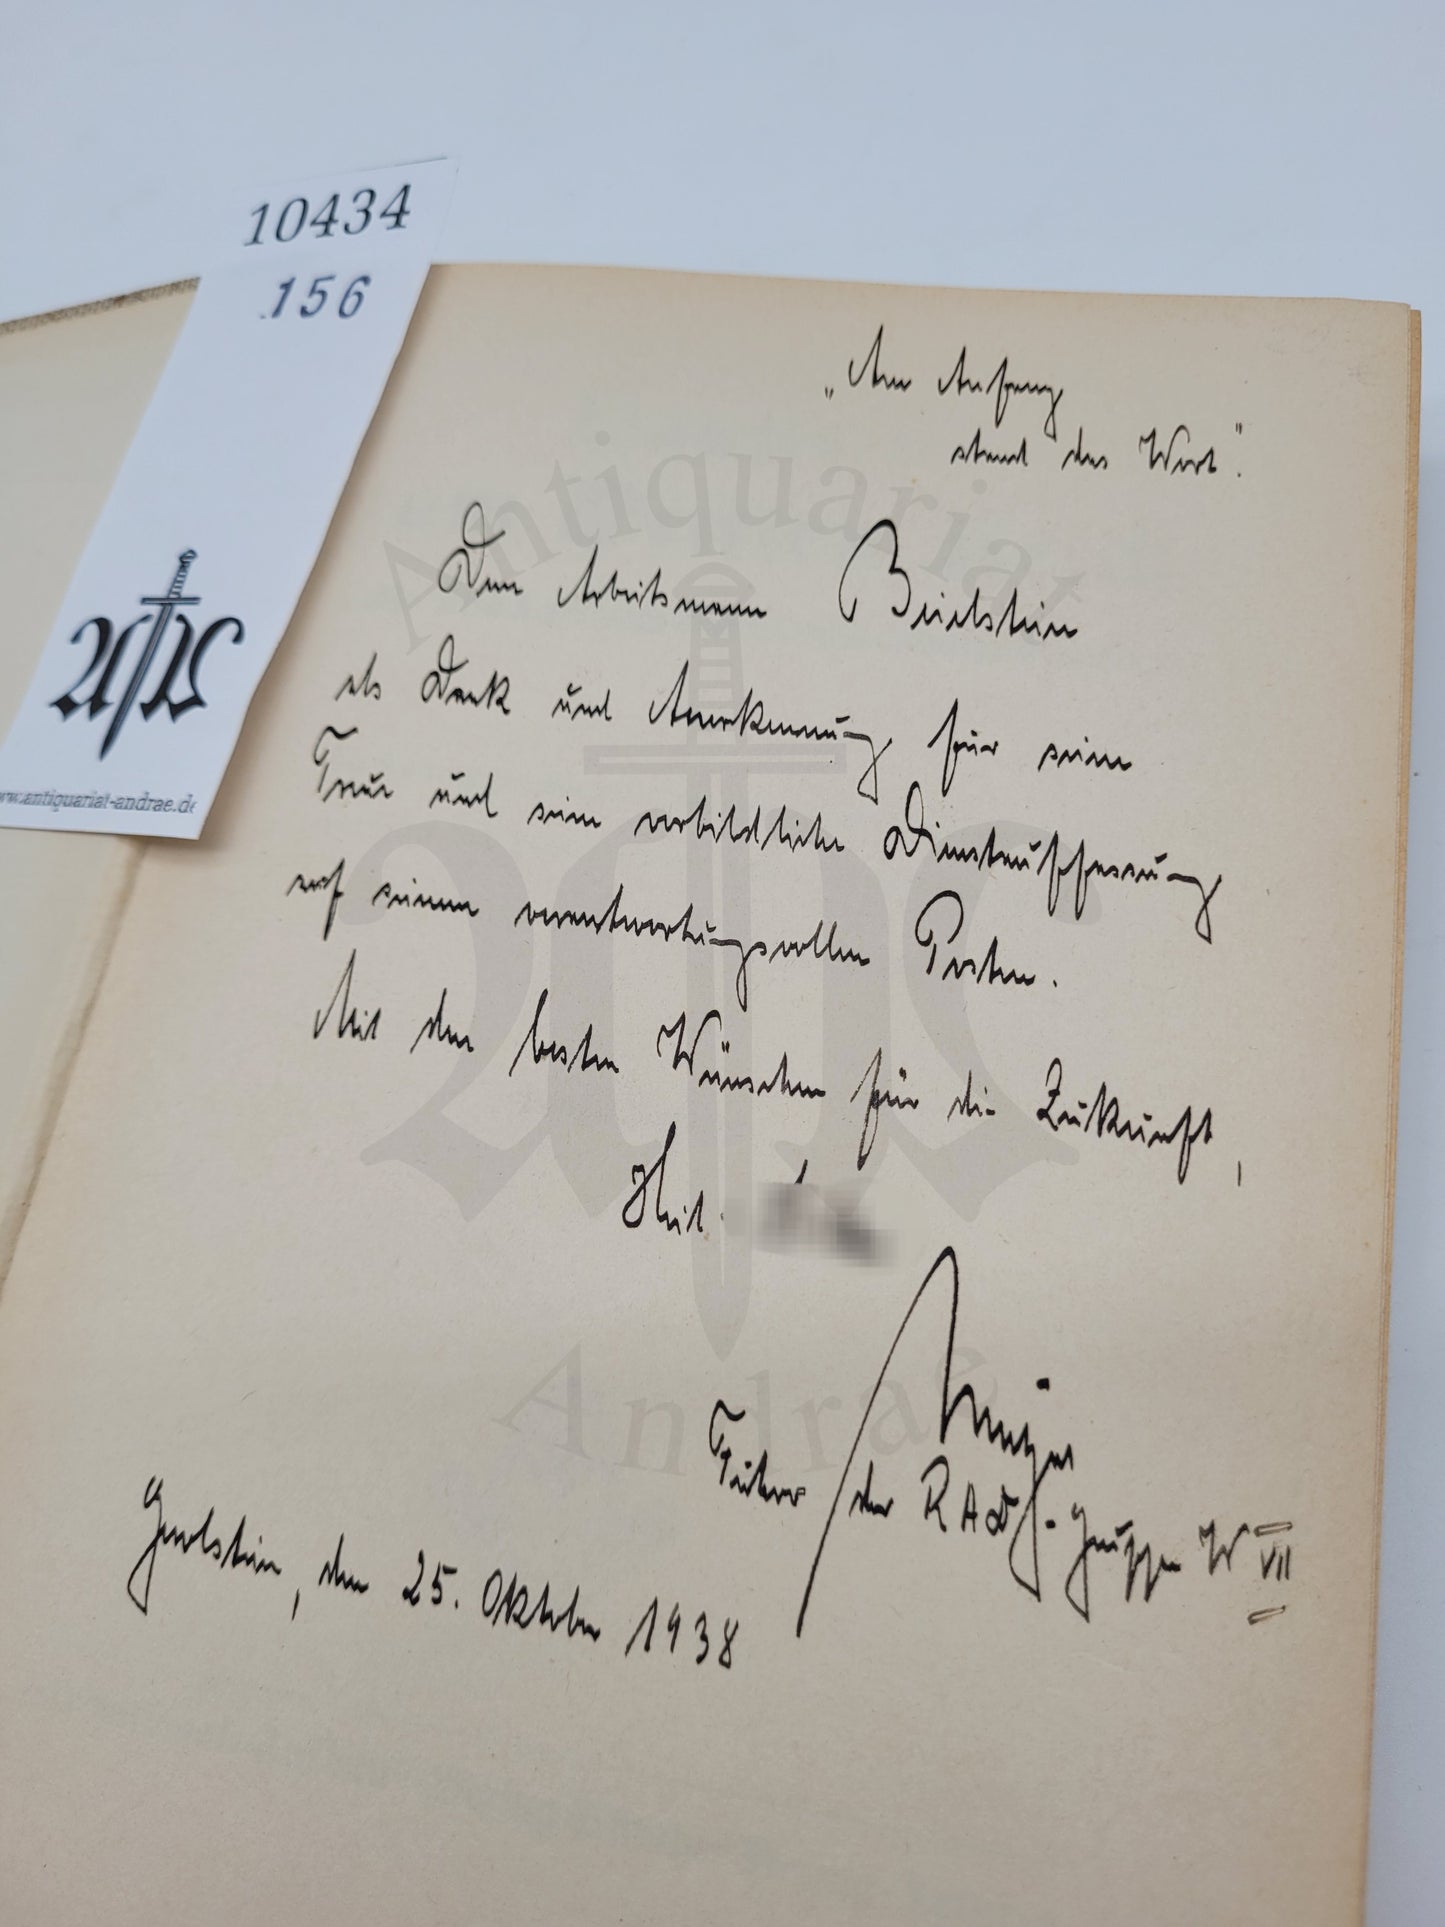 10434
156
www.antiquariat-andrae.de
„Am Anfang
stand das Wort".
Dem Arbeitsmann Beilstein
als Dank und Anerkennung für seine
Treue und seine vorbildliche Dienstauffassung
auf seinem verantwortungsvollen Posten.
Mit den besten Wünschen für die Zukunft,
Heil
Führer der RAD-Gruppe W VII
Gerolstein, den 25. Oktober 1938
Antiquariat
Andrae